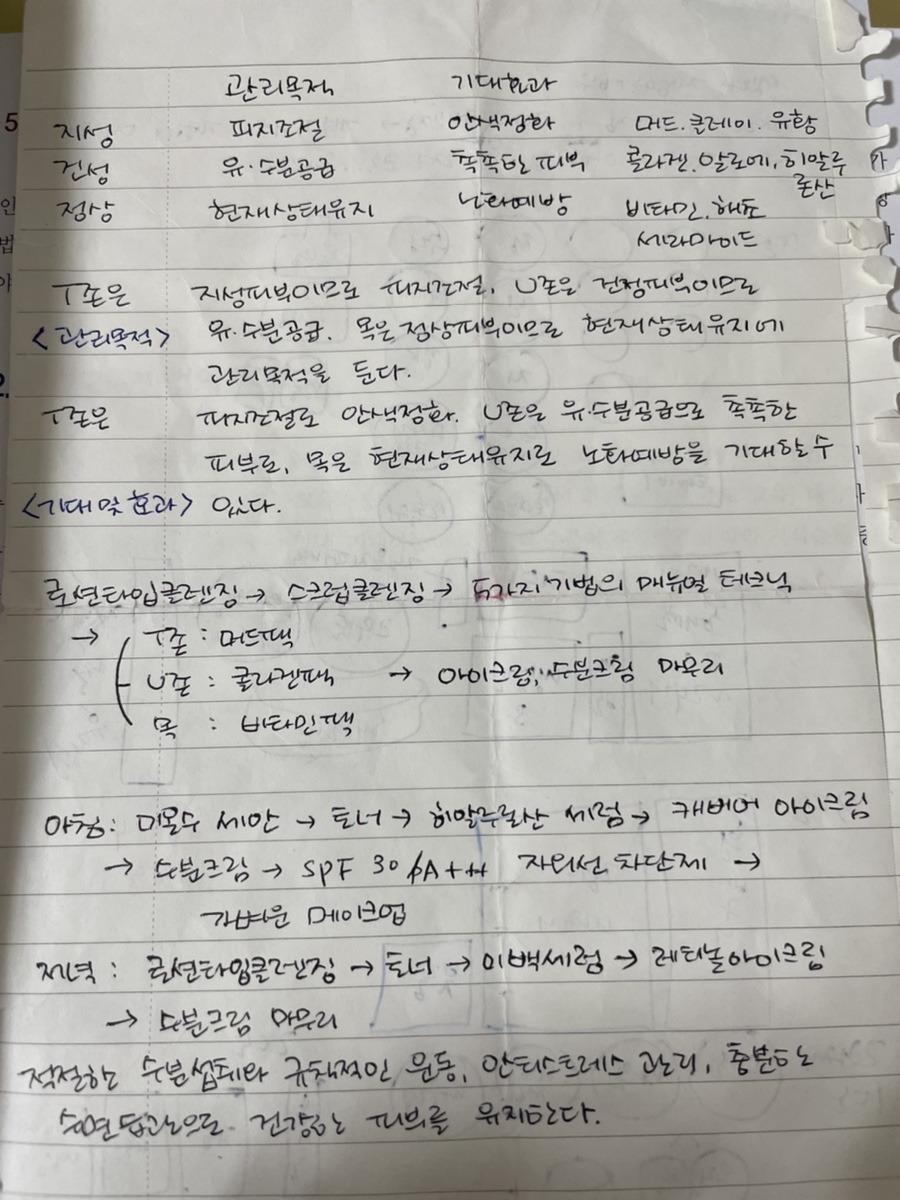 관리목적 기대효과
지성 피지조절 안색정화 머드.클레이.유황
건성 유.수분공급 촉촉한 피부 콜라겐.알로에,히알루
론산
정상 현재상태유지 노화예방 비타민.해초
세라마이드
T존은 지성피부이므로 피지조절, U존은 건성피부이므로
<관리목적> 유.수분공급. 목은 정상피부이므로 현재상태유지에
관리목적을 둔다.
T존은 피지조절로 안색정화. U존은 유.수분공급으로 촉촉한
피부로, 목은 현재상태유지로 노화예방을 기대할 수
<기대 및 효과> 있다.
로션타입클렌징 → 스크럽클렌징 → 5가지 기법의 매뉴얼 테크닉
→ T존 : 머드팩
U존 : 콜라겐팩 → 아이크림, 수분크림 마무리
목 : 비타민팩
아침: 미온수 세안 → 토너 → 히알루론산 세럼 → 캐비어 아이크림
→ 수분크림 → SPF 30 PA+++ 자외선 차단제 →
가벼운 메이크업
저녁 : 로션타입클렌징 → 토너 → 미백세럼 → 레티놀아이크림
→ 수분크림 마무리
적절한 수분섭취와 규칙적인 운동, 안티스트레스 관리, 충분한
으로 건강한 피부를 유지한다.